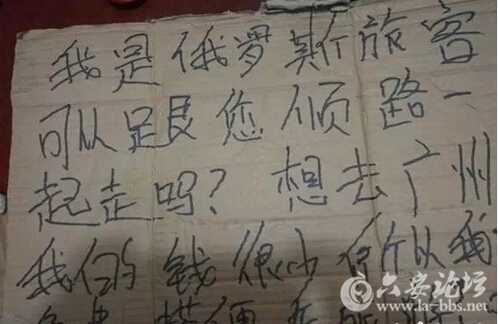 我是俄罗斯旅客
可以跟您顺路一
起走吗？想去广州
我们的钱很少所以我
搭便
六安论坛
www.la-bbs.net